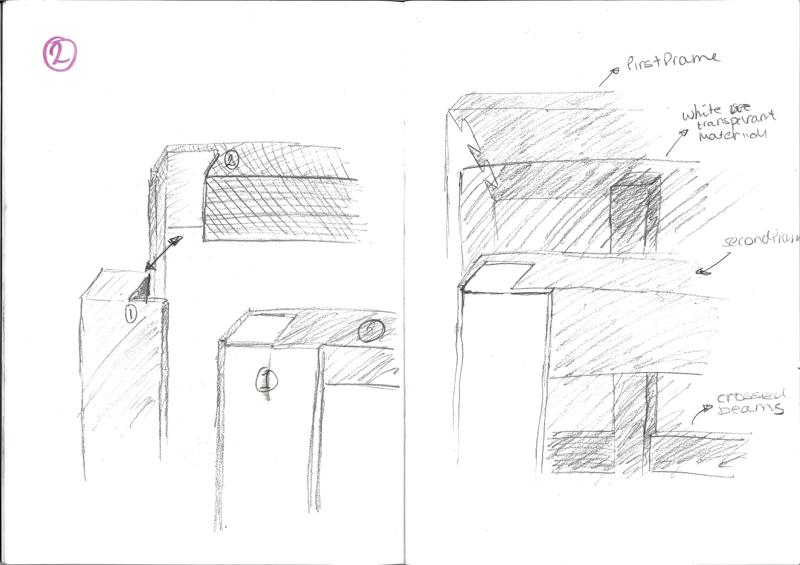 2
2
1
1
2
first frame
white
transparant
material
second frame
crossed
beams